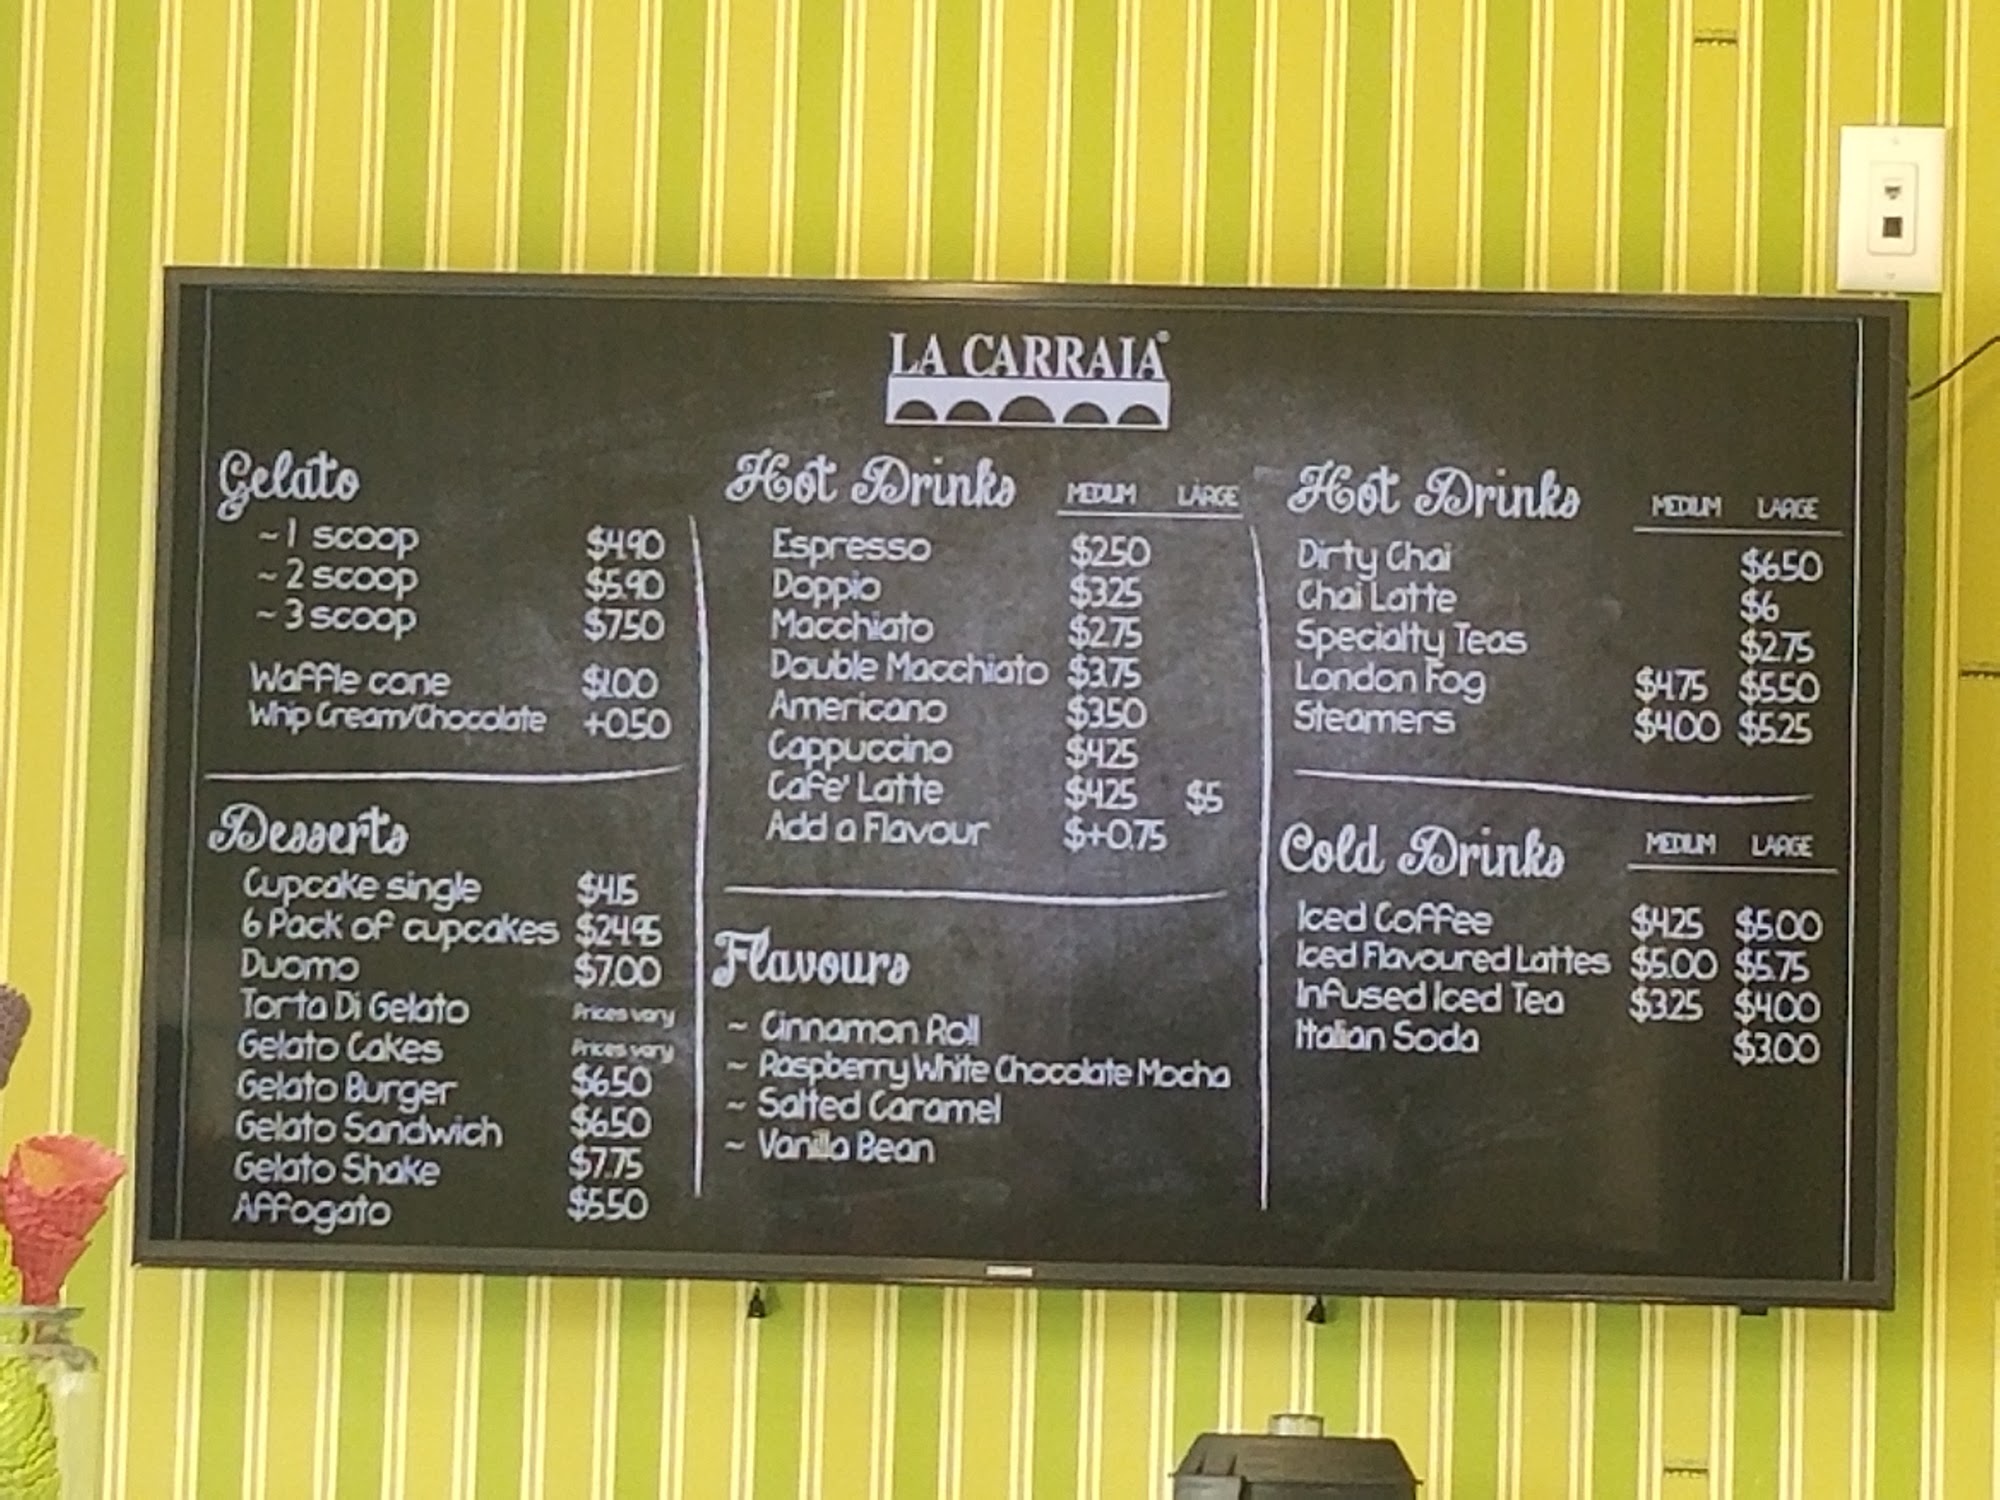 LA CARRAIA
Gelato
~ 1 scoop $4.90
~ 2 scoop $5.90
~ 3 scoop $7.50
Waffle cone $1.00
Whip Cream/Chocolate +0.50
Desserts
Cupcake single $4.15
6 Pack of cupcakes $24.95
Duomo $7.00
Torta Di Gelato Prices vary
Gelato Cakes Prices vary
Gelato Burger $6.50
Gelato Sandwich $6.50
Gelato Shake $7.75
Affogato $5.50
Hot Drinks MEDIUM LARGE
Espresso $2.50
Doppio $3.25
Macchiato $2.75
Double Macchiato $3.75
Americano $3.50
Cappuccino $4.25
Cafe' Latte $4.25 $5
Add a Flavour $+0.75
Flavours
~ Cinnamon Roll
~ Raspberry White Chocolate Mocha
~ Salted Caramel
~ Vanilla Bean
Hot Drinks MEDIUM LARGE
Dirty Chai $6.50
Chai Latte $6
Specialty Teas $2.75
London Fog $4.75 $5.50
Steamers $4.00 $5.25
Cold Drinks MEDIUM LARGE
Iced Coffee $4.25 $5.00
Iced Flavoured Lattes $5.00 $5.75
Infused Iced Tea $3.25 $4.00
Italian Soda $3.00